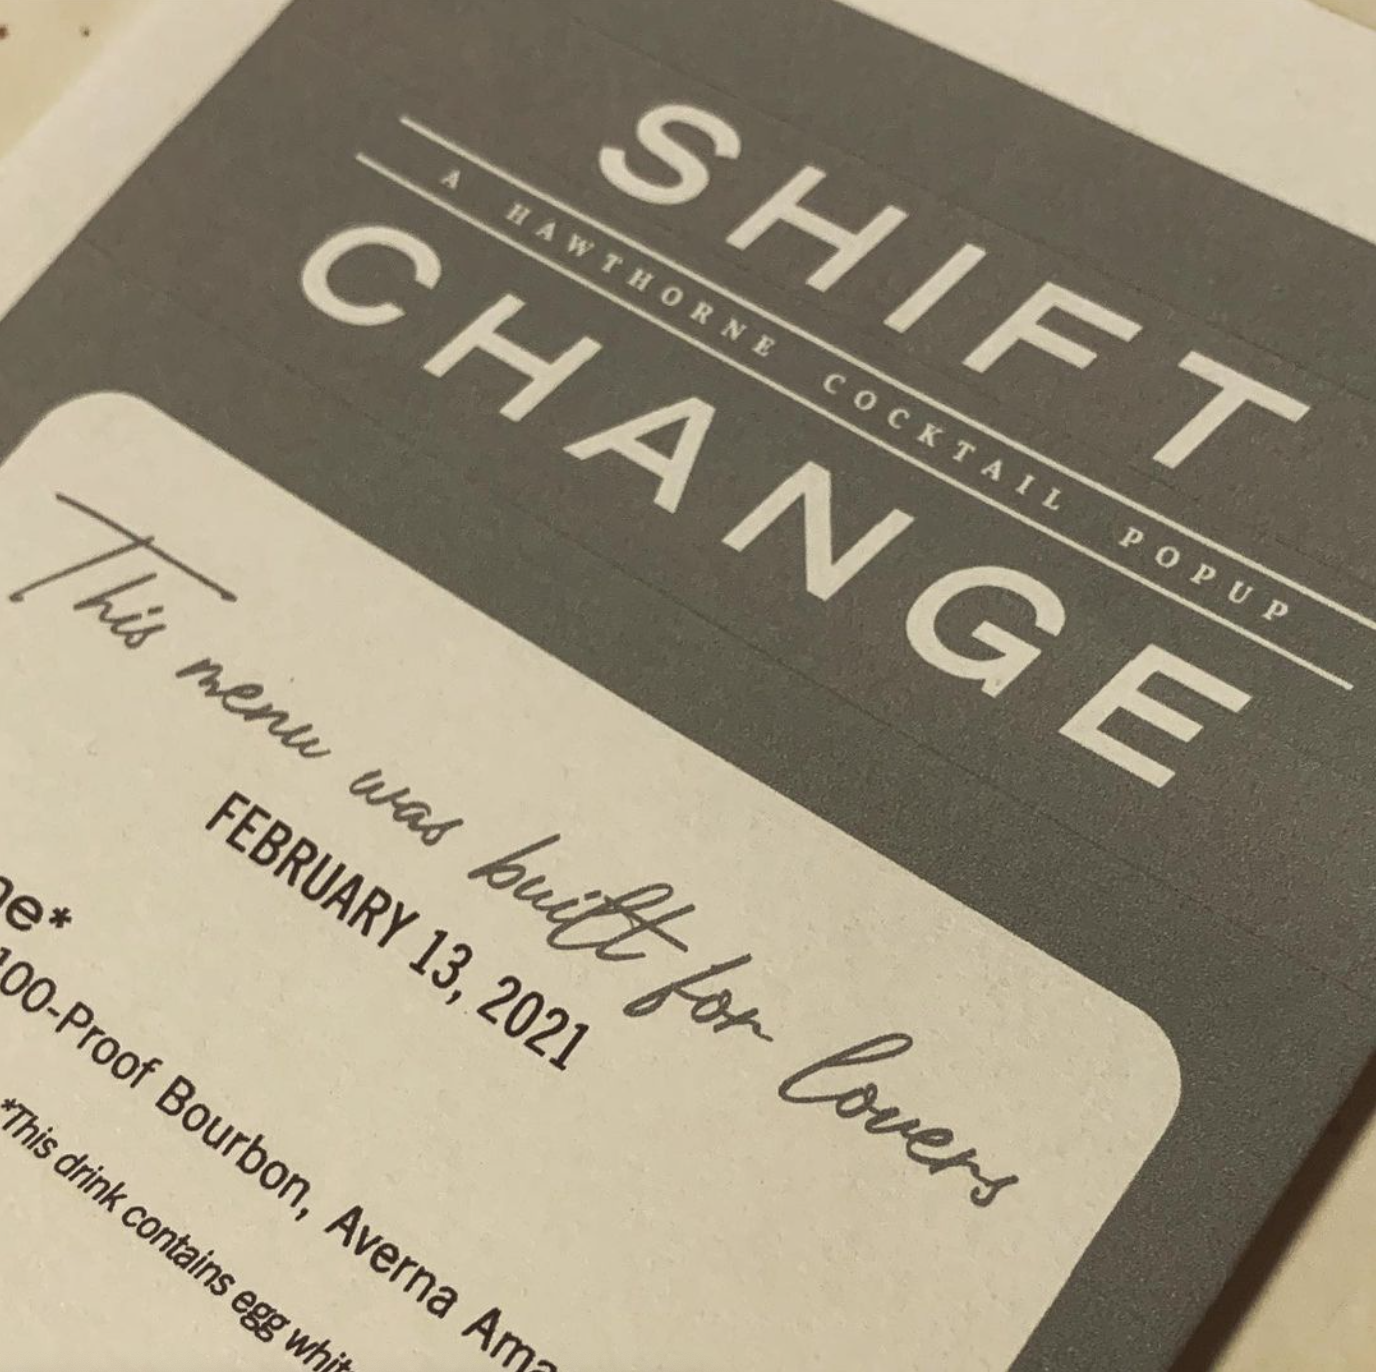 SHIFT
A HAWTHORNE COCKTAIL POPUP
CHANGE
This menu was built for lovers
FEBRUARY 13, 2021
100-Proof Bourbon, Averna
*This drink contains egg